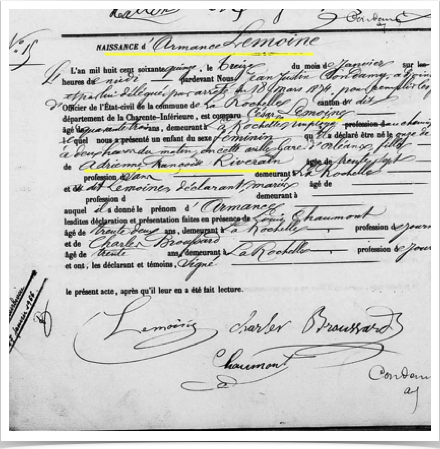 Condamy
aj
No 15
NAISSANCE d'Armance Lemoine
L'an mil huit cent soixante quinze, le Treize du mois de Janvier
heures de midi pardevant Nous Jean Justin Condamy, adjoint
par arrêté du 18 mars 1874, pour remplir les
d'Officier de l'État-civil de la commune de La Rochelle canton de dit
département de la Charente-Inférieure, est comparu César Lemoine
trois ans, demeurant à La Rochelle profession
lequel nous a présenté un enfant du sexe féminin qu'il a déclaré né le onze de
à deux heures du matin, en cette ville gare d'Orléans, fille
de Adrienne Françoise Riverain âgée de
profession d sans demeurant à La Rochelle
et dit Lemoine déclarant mariés âgé de
profession d demeurant à
auquel il a donné le prénom d'Armance
lesdites déclaration et présentation faites en présence de Louis Chaumont
âgé de trente deux ans, demeurant à La Rochelle profession de
et de Charles Broussard
âgé de trente ans, demeurant La Rochelle profession de
et ont, les déclarant et témoins, signé
le présent acte, après qu'il leur en a été fait lecture.
Lemoine Charles Broussard
Chaumont
Condamy
aj